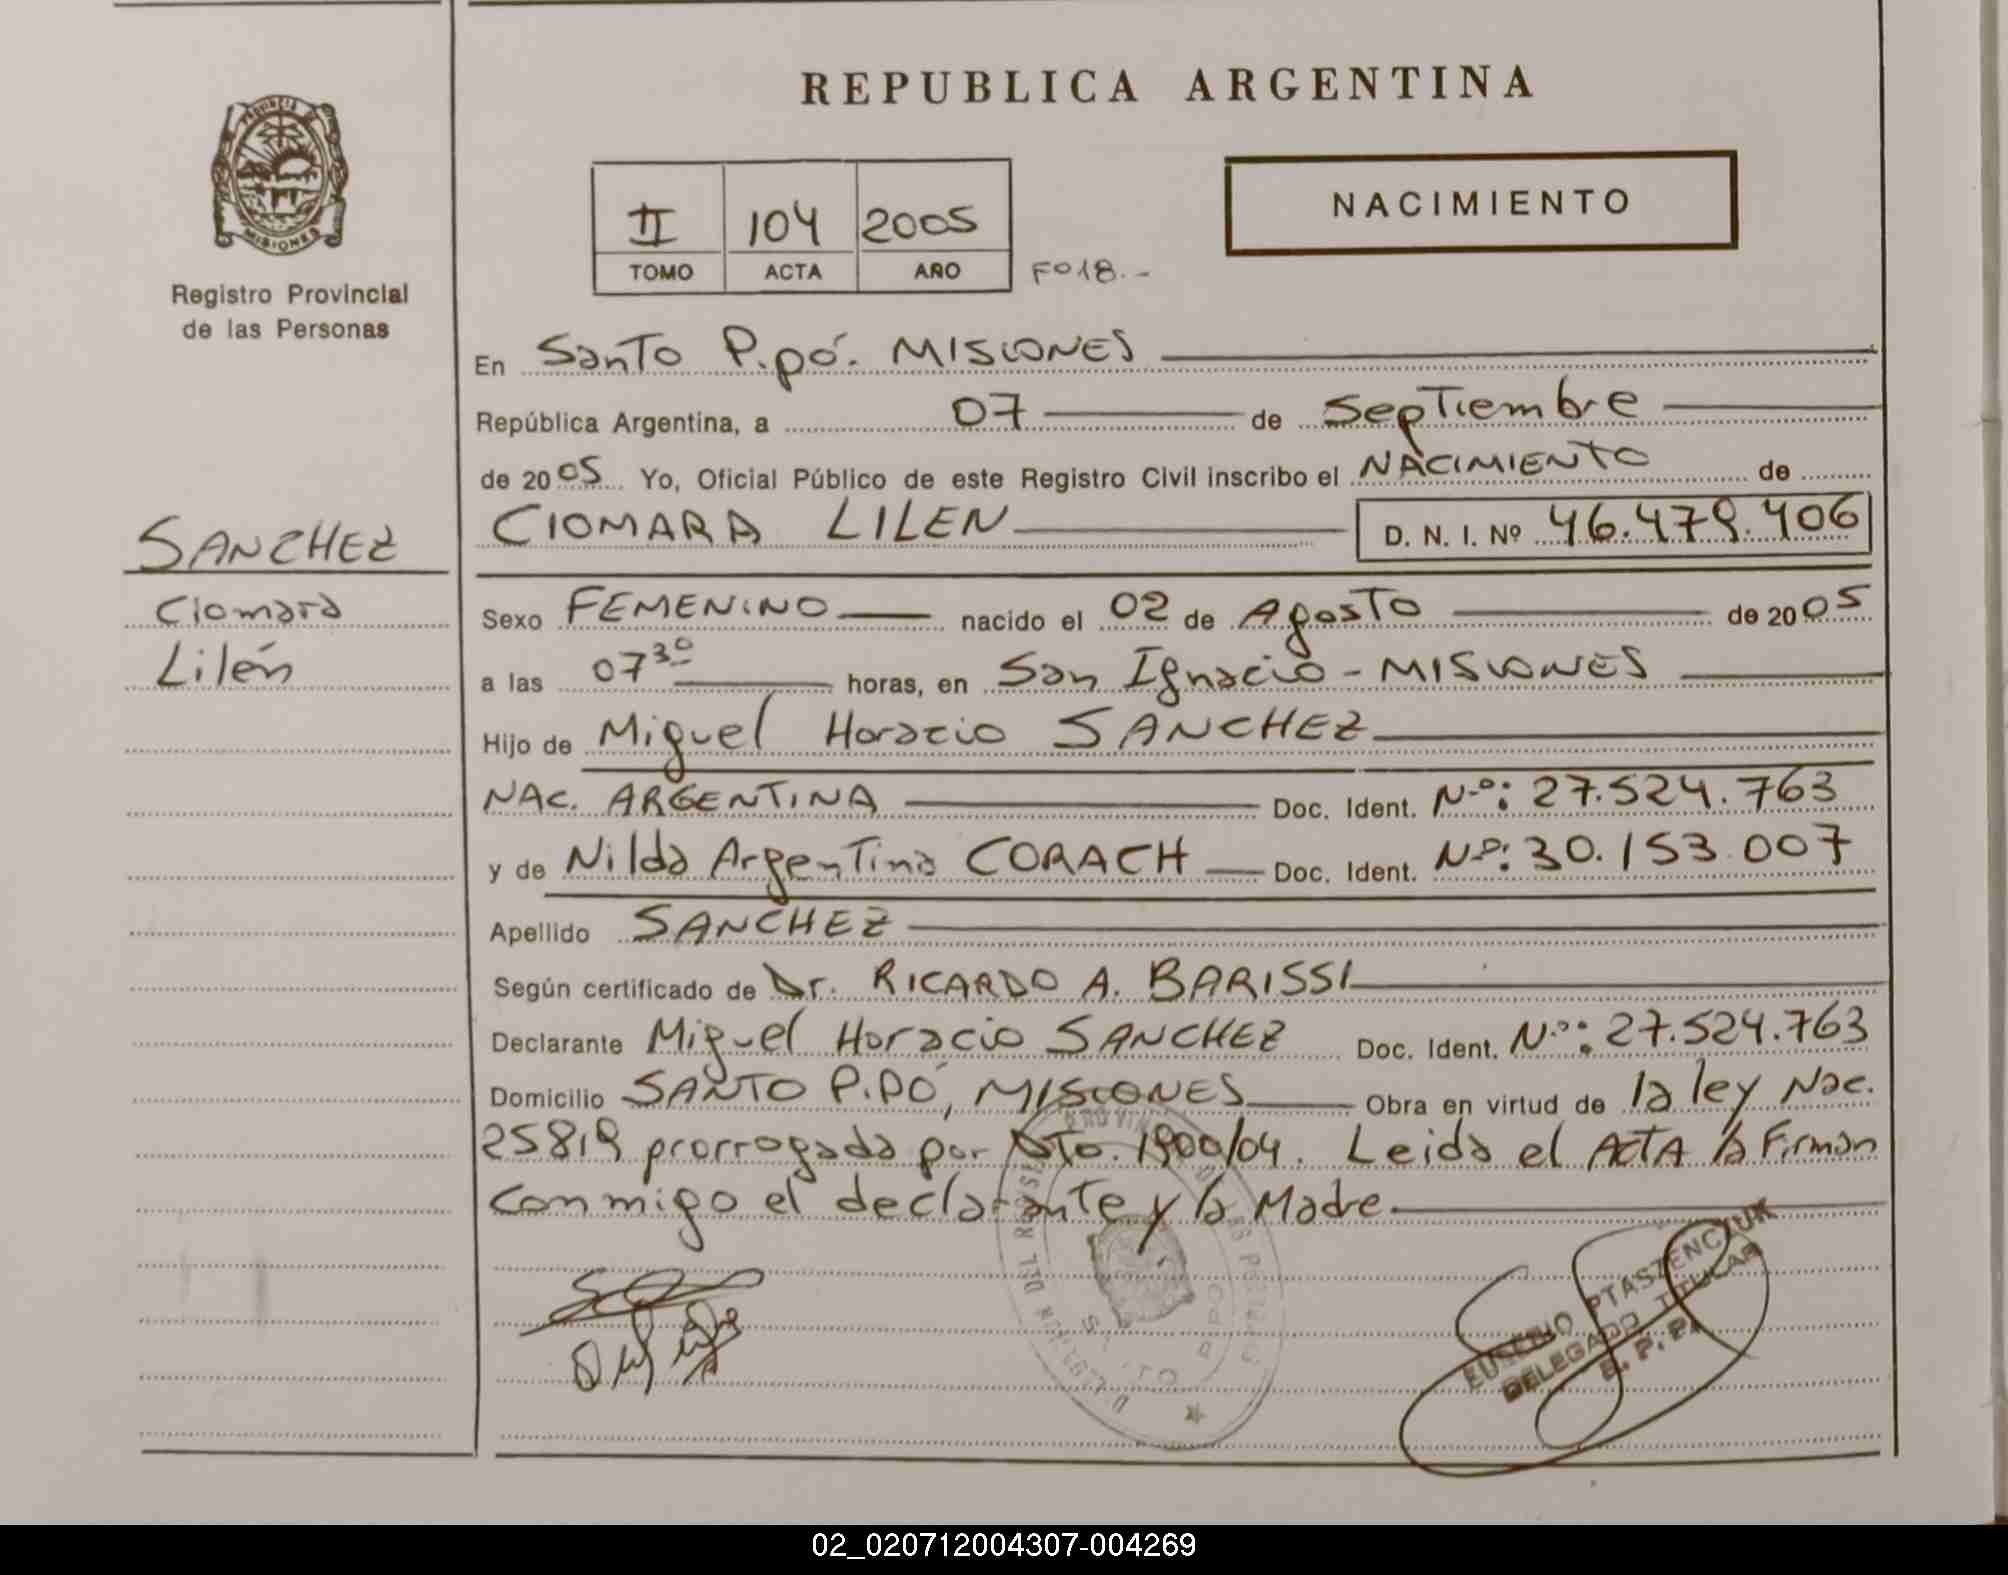 REPUBLICA ARGENTINA
PROVINCIA DE
MISIONES
Registro Provincial
de las Personas
II 104 2005
TOMO ACTA AÑO
Fº 18.-
NACIMIENTO
En Santo Pipó. MISIONES
República Argentina, a 07 de Septiembre
de 2005 Yo, Oficial Público de este Registro Civil inscribo el NACIMIENTO de
SANCHEZ
Ciomara
Lilén
CIOMARA LILEN D. N. I. Nº 46.479.406
Sexo FEMENINO nacido el 02 de Agosto de 2005
a las 07 30 horas, en San Ignacio - MISIONES
Hijo de Miguel Horacio SANCHEZ
NAC. ARGENTINA Doc. Ident. Nº: 27.524.763
y de Nilda Argentina CORACH Doc. Ident. Nº: 30.153.007
Apellido SANCHEZ
Según certificado de Dr. RICARDO A. BARISSI
Declarante Miguel Horacio SANCHEZ Doc. Ident. Nº: 27.524.763
Domicilio SANTO PIPÓ, MISIONES Obra en virtud de la ley Nac.
25819 prorrogada por DTo. 1900/04. Leida el ACTA la Firman
Conmigo el declarante y la Madre.
EUSEBIO PTASZENCZUK
DELEGADO TITULAR
R. P. P.
02_020712004307-004269